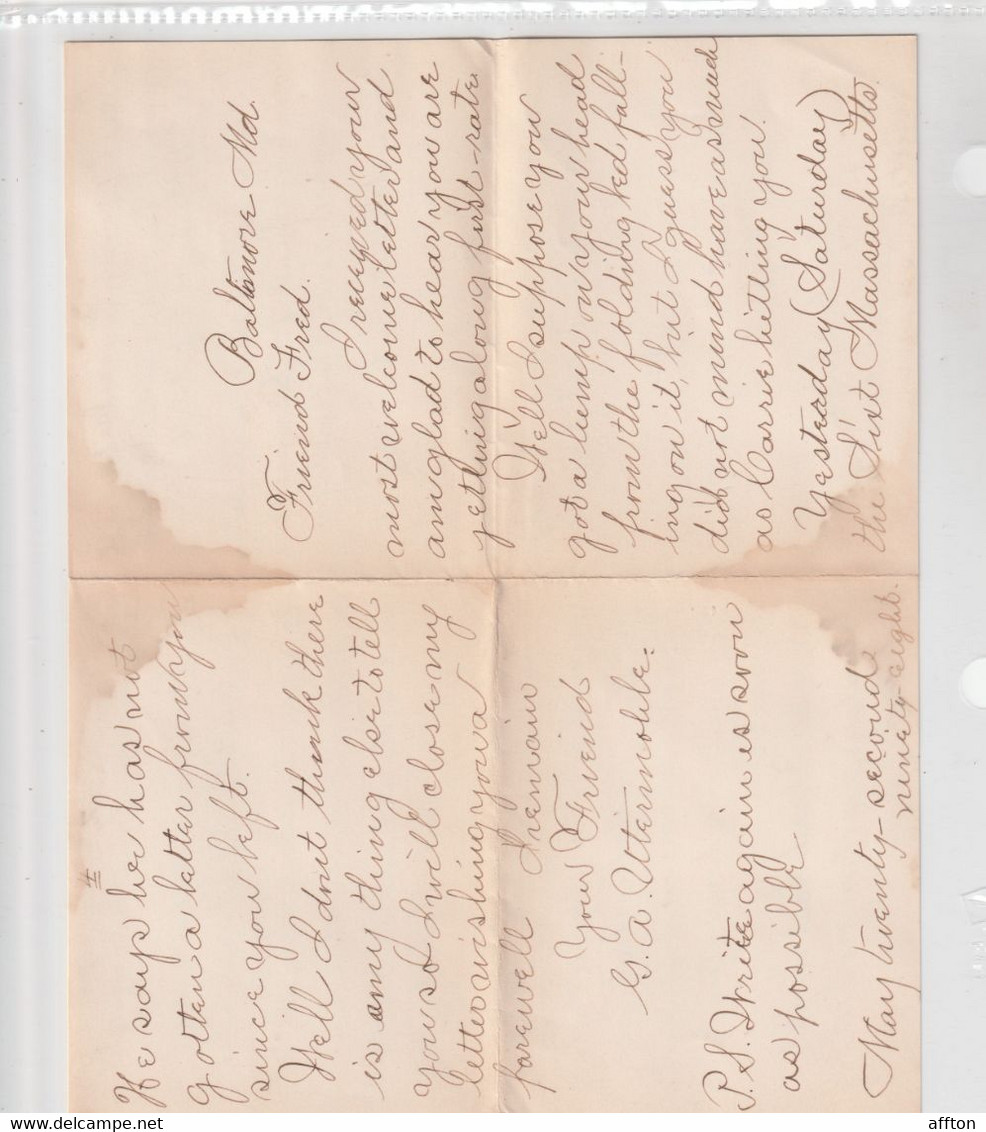 Baltimore Md.
Friend Fred.
I received your
most welcome letter and
am glad to hear you are
getting along first-rate.
Well I suppose you
got a lump on your head
from the folding bed fall-
ing on it, but I guess you
did not mind have as much
as Carrie hitting you.
Yesterday (Saturday)
the Sixt Massachusetts.
II
He says he has not
gotten a letter from you
since you left.
Well I dont think there
is any thing else to tell
you so I will close my
letter wishing you a
farewell I remain
Your Friend
G. A. Utermohle.
P.S. Write again as soon
as possible
May twenty-second
ninety-eight.
affton